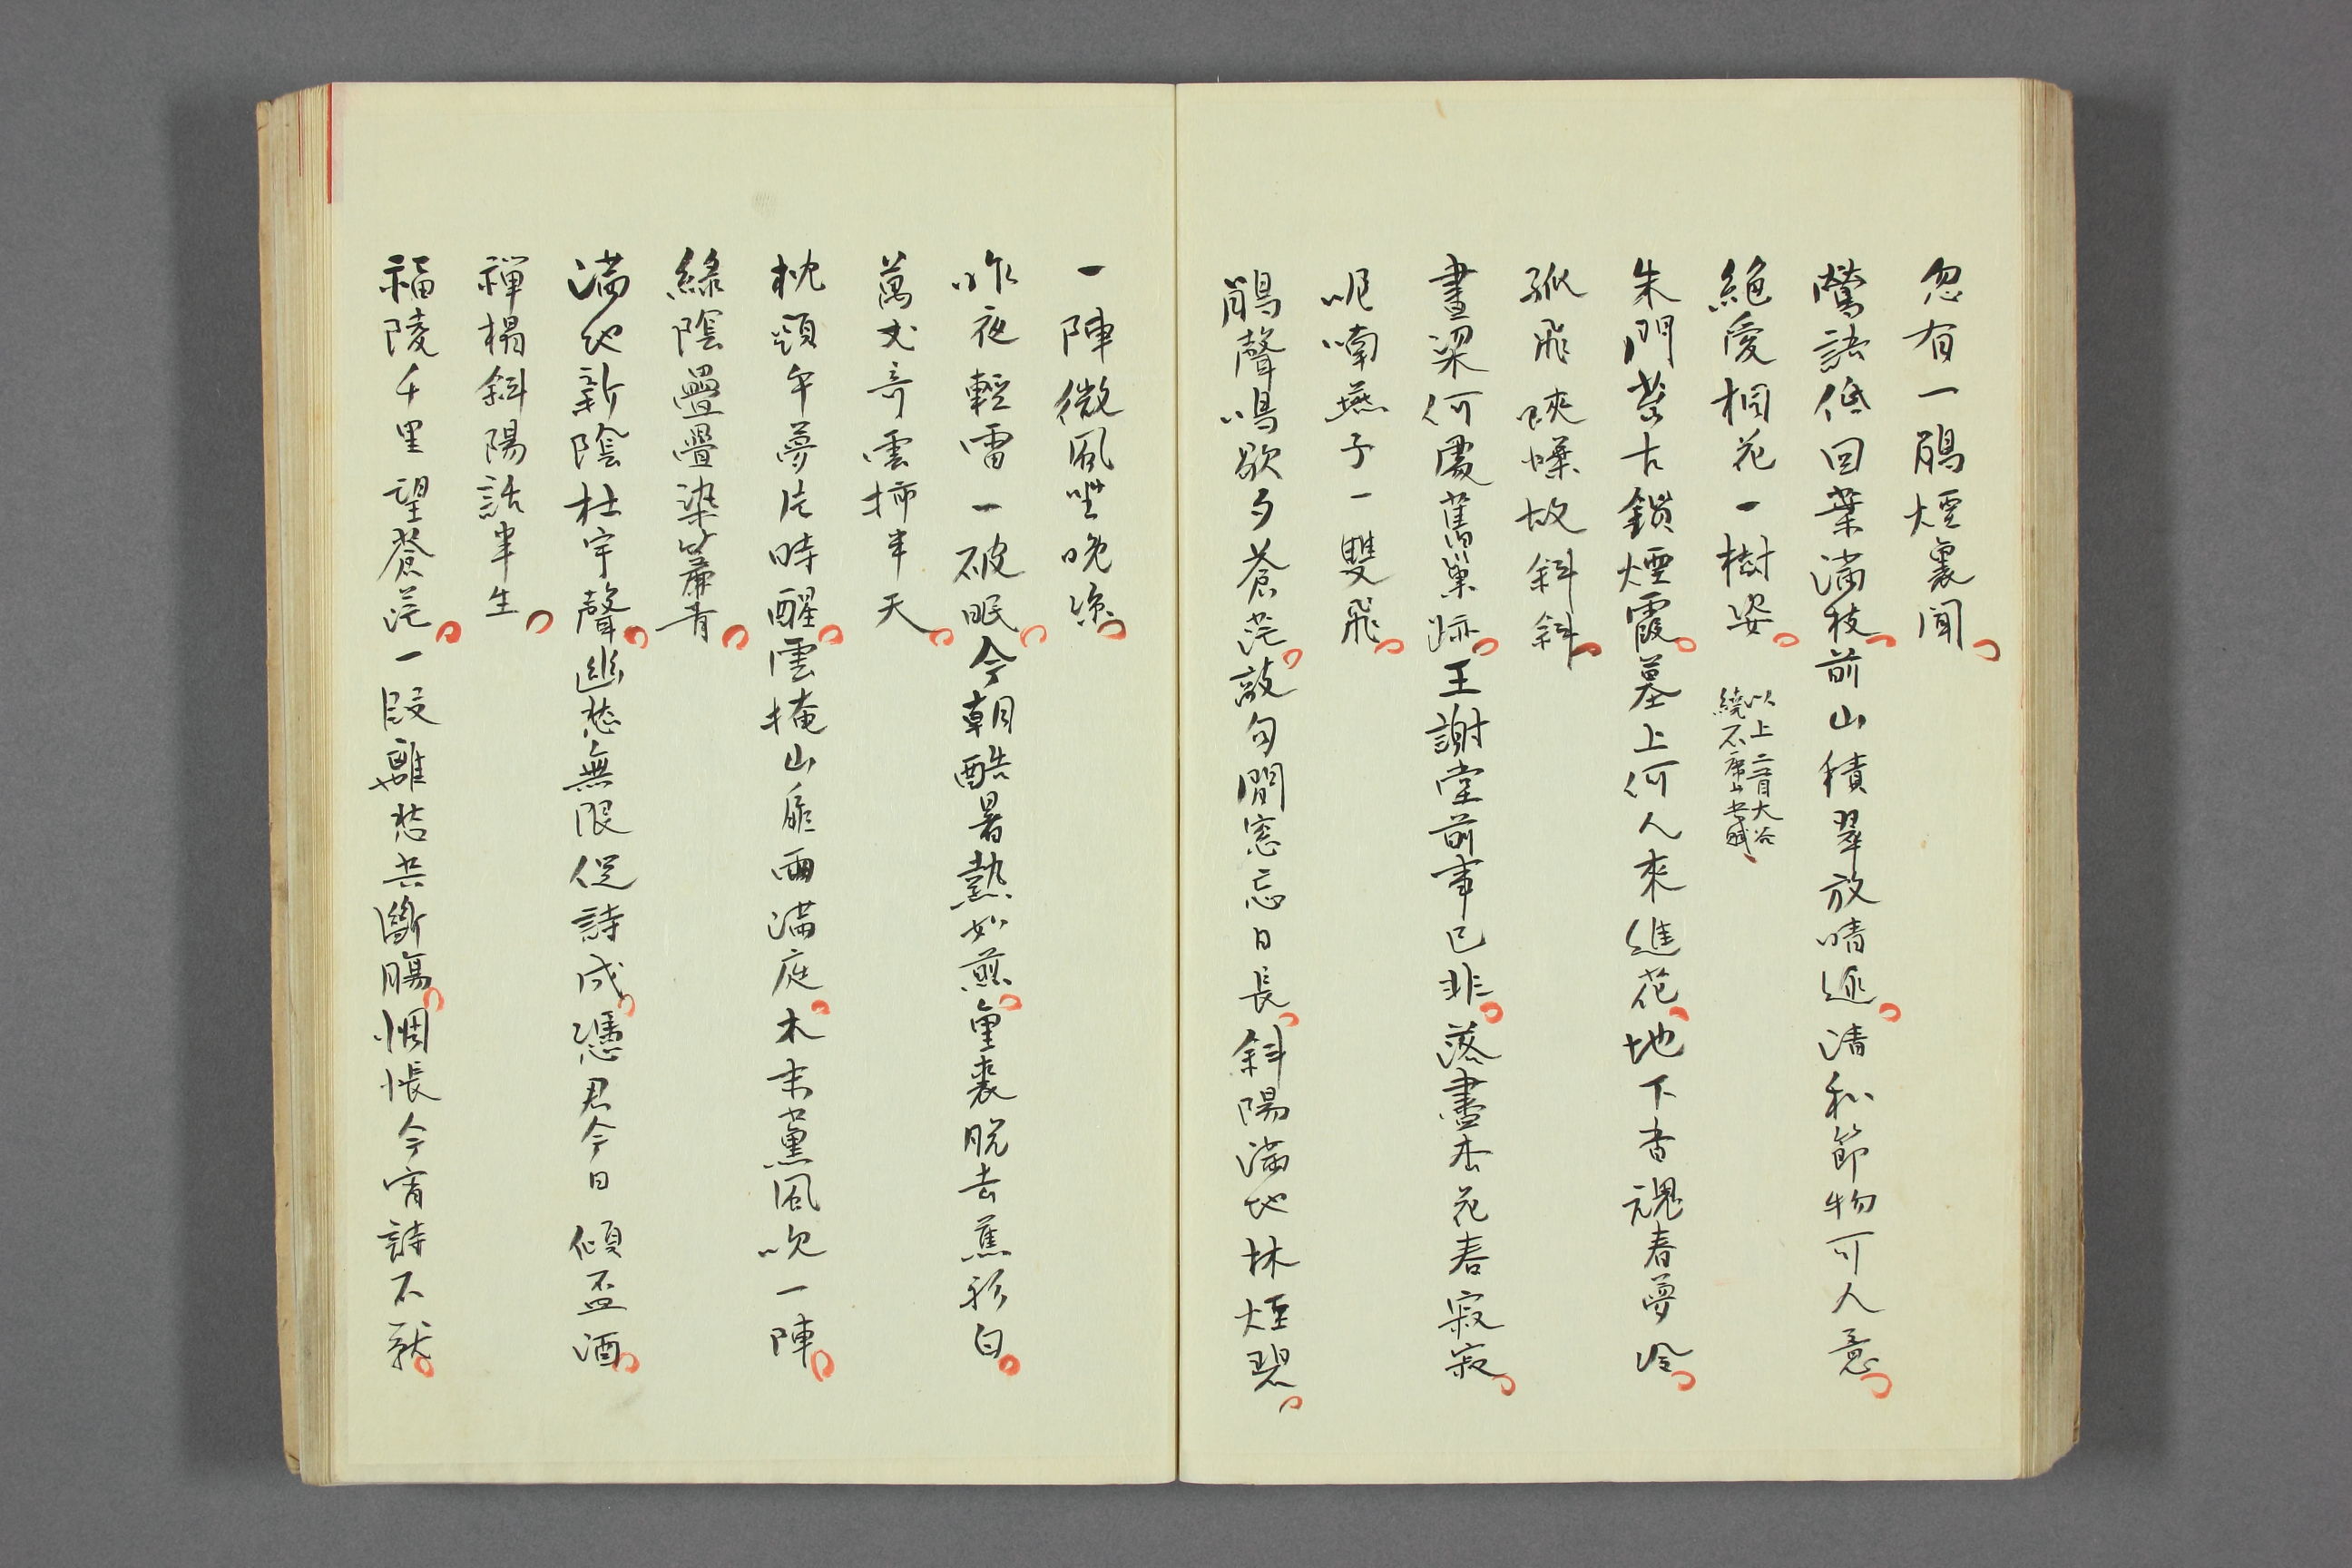 忽有一鵑煙裏聞
鶯語低回葉滿枝前山積翠放晴遲清和節物可人意
絕愛桐花一樹姿
以上二首大谷
繞石席上出賦
朱門萬古鎖煙霞墓上何人來進花地下香魂春夢冷
孤飛蛺蝶故斜斜
畫梁何處舊巢跡王謝堂前事已非落盡杏花春寂寂
呢喃燕子一雙飛
鵑聲鳴歇夕蒼茫敲句閒窓忘日長斜陽滿地林煙碧
一陣微風坐晚涼
昨夜輕雷一破眠今朝酷暑熱如煎重裘脫去蕉衫白
萬丈奇雲插半天
枕頭午夢片時醒雲掩山扉雨滿庭木末薰風吹一陣
綠陰疊疊染簾青
滿地新陰杜宇聲幽愁無限促詩成憑君今日傾盃酒
禪榻斜陽話半生
福陵千里望蒼茫一段離愁共斷腸惆悵今宵詩不就